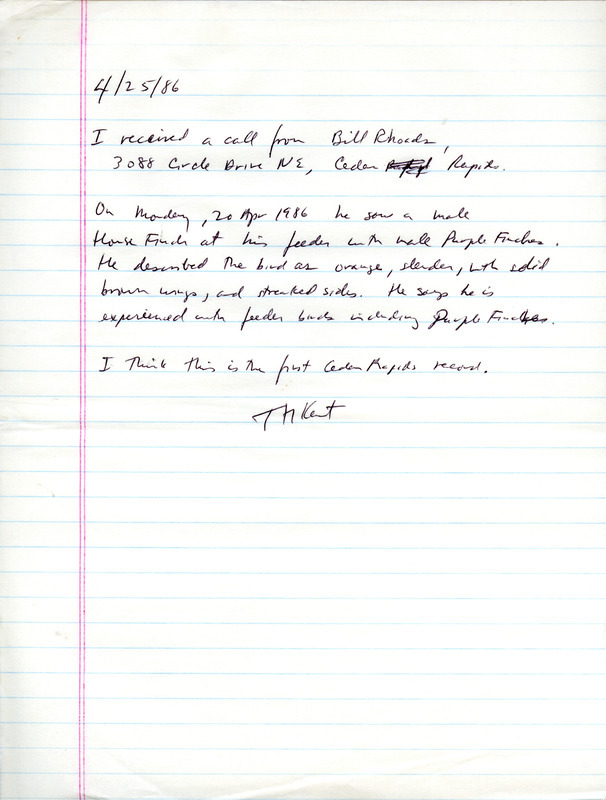 4/25/86
I received a call from Bill Rhoads,
3088 Circle Drive NE, Cedar Rapids.
On Monday, 20 Apr 1986 he saw a male
House Finch at his feeder with male Purple Finches.
He described the bird as orange, slender, with solid
brown wings, and streaked sides. He says he is
experienced with feeder birds including Purple Finches.
I think this is the first Cedar Rapids record.
TH Kent